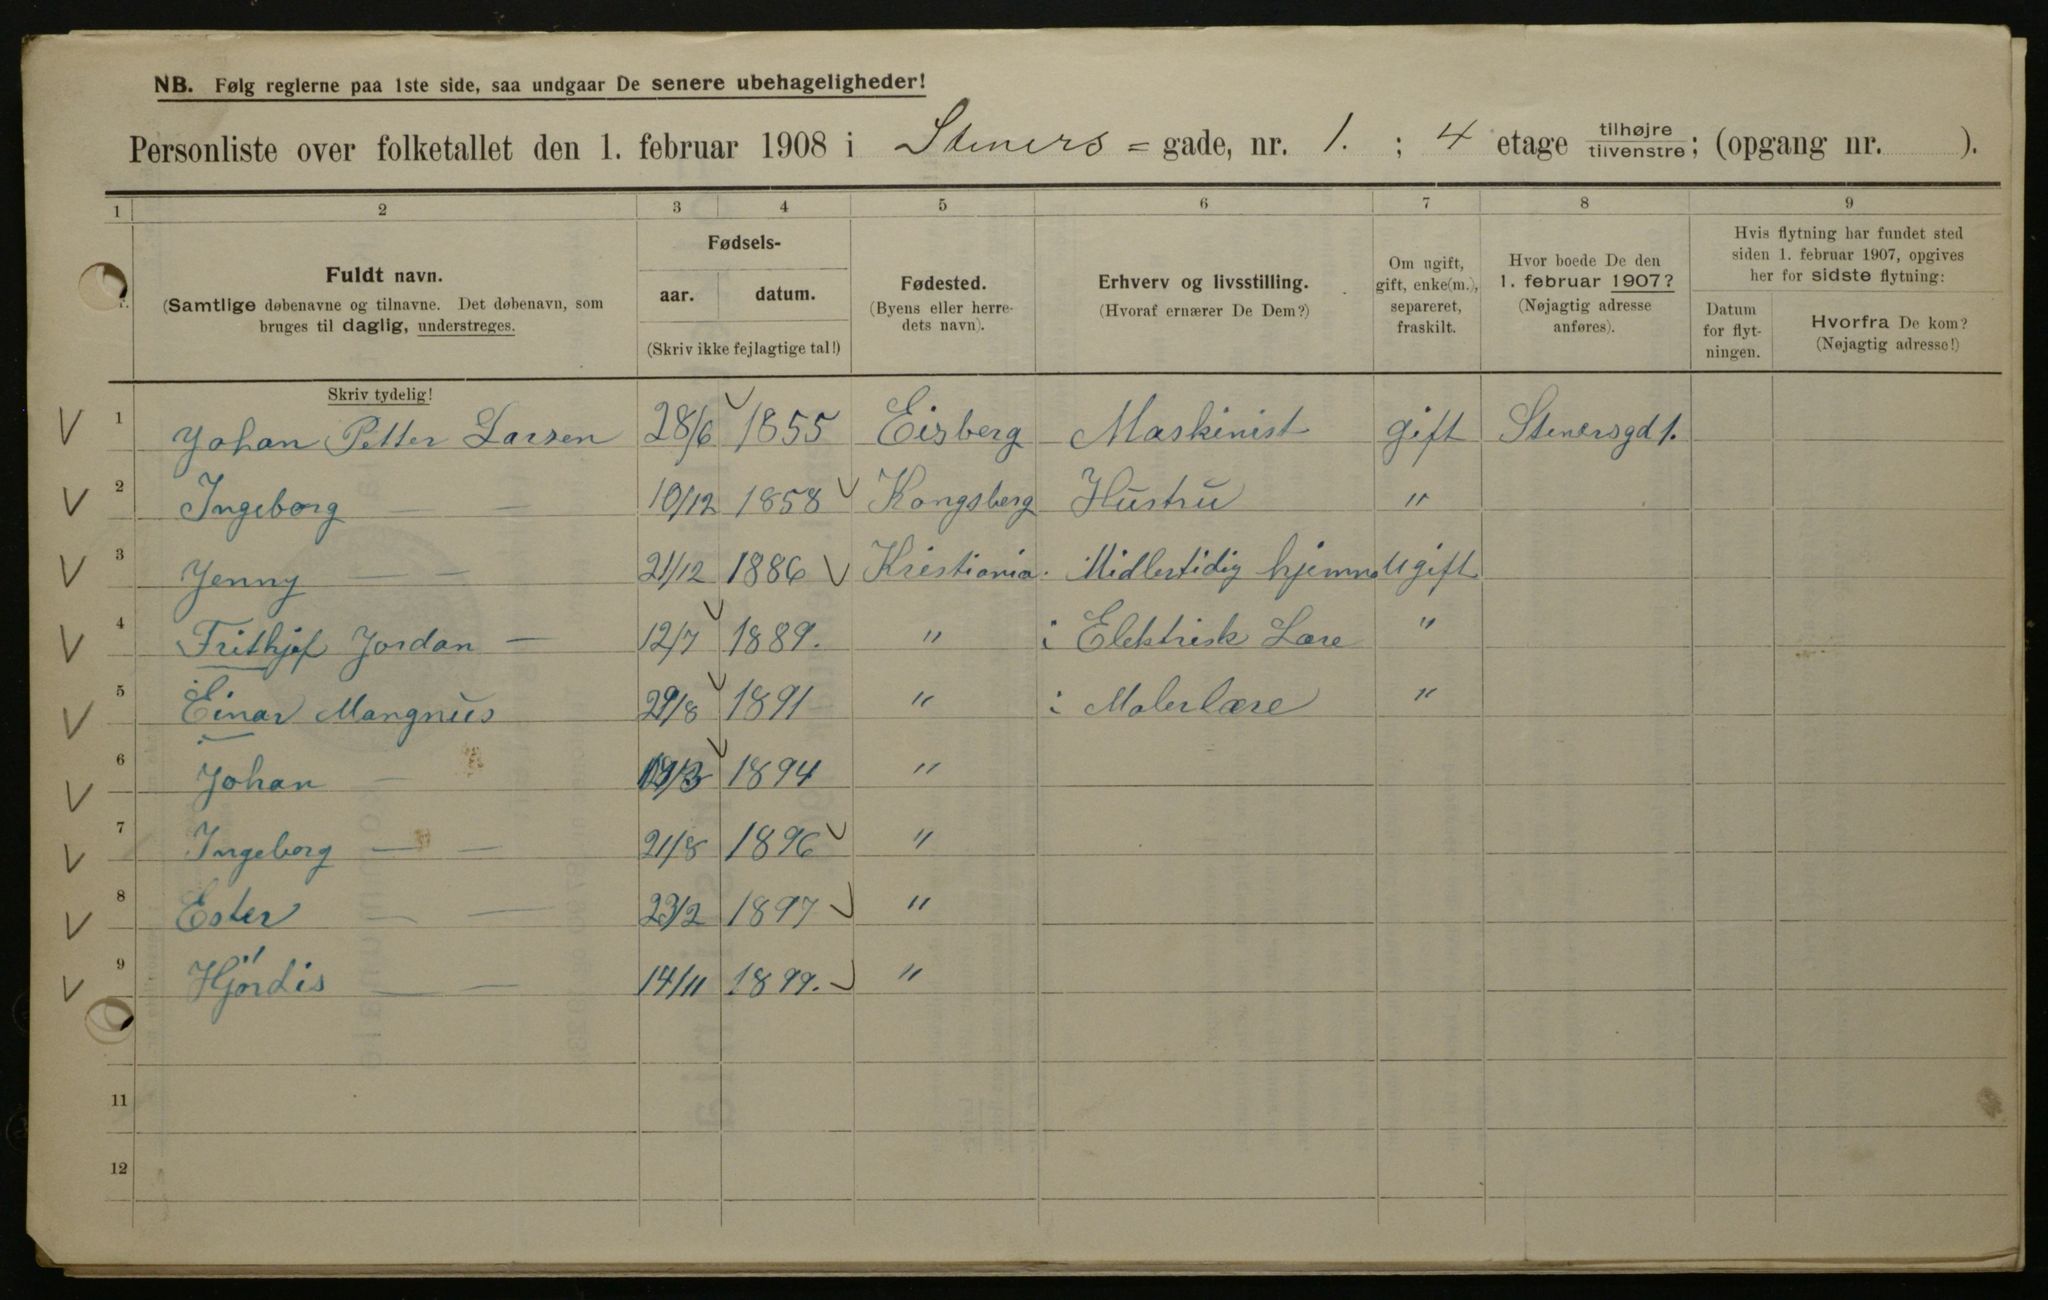 NB. Følg reglerne paa 1ste side, saa undgaar De senere ubehageligheder!
Personliste over folketallet den 1. februar 1908 i Steners = gade, nr. 1. ; 4 etage tilhøjre tilvenstre; (opgang nr. ).
1 2 3 4 5 6 7 8 9
Fuldt navn.
(Samtlige døbenavne og tilnavne. Det døbenavn, som
bruges til daglig, understreges.
Fødsels-
aar. datum.
(Skriv ikke fejlagtige tal!)
Fødested.
(Byens eller herre-
dets navn).
Erhverv og livsstilling.
(Hvoraf ernærer De Dem?)
Om ugift,
gift, enke(m.),
separeret,
fraskilt.
Hvor boede De den
1. februar 1907?
(Nøjagtig adresse
anføres).
Hvis flytning har fundet sted
siden 1. februar 1907, opgives
her for sidste flytning:
Datum
for flyt-
ningen.
Hvorfra De kom?
(Nøjagtig adresse!)
Skriv tydelig!
1 Johan Petter Larsen 28/6 1855 Eisberg Maskinist gift Stenersgd 1.
2 Ingeborg — — 10/12 1858 Kongsberg Hustru "
3 Jenny — — 21/12 1886 Kristiania. Midlertidig hjemme Ugift
4 Frithjof Jordan — 12/7 1889. " i Elektrisk Lære "
5 Einar Mangnus 29/8 1891 " i Malerlære "
6 Johan — 1894 "
7 Ingeborg — — 21/8 1896 "
8 Ester — — 23/2 1897 "
9 Hjördis — — 14/11 1899. "
11
12